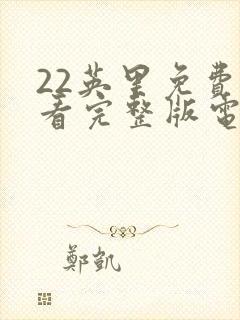 22英里免費
看完整版電
鄭凱